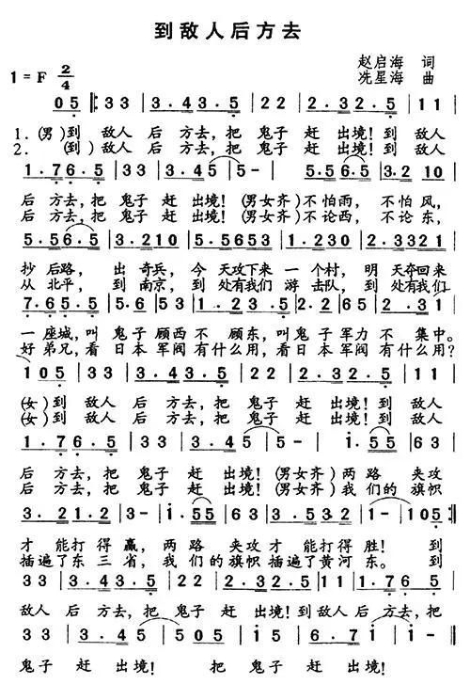 到敌人后方去
赵启海 词
1=F 2/4
冼星海 曲
05 |: 33 | 3.43.5 | 22 | 2.32.5 | 11 |
1.(男)到 敌人 后 方去,把 鬼子 赶 出境!到 敌人
2.(到)敌人 后 方去,把 鬼子 赶 出境!到 敌人
1.76.5 | 33 | 3.45 | 5- | 5.56.5 | 3.2 10 |
后 方去,把 鬼子 赶 出境!(男女齐)不怕雨, 不怕风,
后 方去,把 鬼子 赶 出境!(男女齐)不论西, 不论东,
5.56.5 | 3.210 | 5.5653 | 1.230 | 2.3321 |
抄后路, 出奇兵, 今天攻下来 一个村, 明天夺回来
从北平, 到南京, 到处有我们 游击队, 到处有我们
7.65.5 | 5.6 53 | 1.23.5 | 1.65.6 | 2.31 |
一座城,叫 鬼子 顾西不 顾东,叫鬼子 军力 不 集中。
好弟兄,看 日本 军阀 有什么用,看日本军阀 有什么用?
105 | 33 | 3.43.5 | 22 | 2.32.5 | 11 |
(女)到 敌人 后 方去,把 鬼子 赶 出境!到 敌人
(女)到 敌人 后 方去,把 鬼子 赶 出境!到 敌人
1.76.5 | 33 | 3.45 | 5- | i.55 | 63 |
后 方去,把 鬼子 赶 出境!(男女齐)两路 夹攻
后 方去,把 鬼子 赶 出境!(男女齐)我们的 旗帜
3.21.2 | 3- | i.55 | 63 | 3.532 | 1- | 105 :|
才 能打得 赢, 两路 夹攻 才能打得 胜! 到
插遍了东 三 省, 我们的 旗帜 插遍了 黄河 东。 到
33 | 3.43.5 | 22 | 2.32.5 | 11 | 1.76.5 |
敌人 后 方去,把 鬼子 赶 出境!到 敌人 后 方去,把
33 | 3.45 | 505 | i5 | 6.7i | i- ‖
鬼子 赶 出境! 把 鬼子 赶 出境!